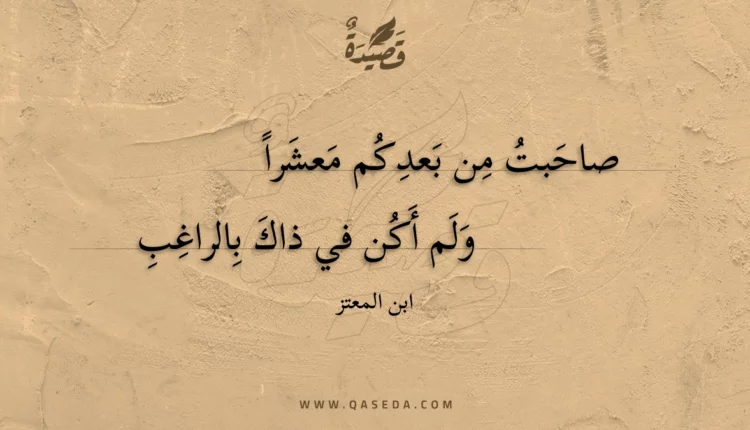 قَصِيْدَةٌ
صاحَبتُ مِن بَعدِكُم مَعشَراً
وَلَم أَكُن في ذاكَ بِالراغِبِ
ابن المعتز
WWW.QASEDA.COM